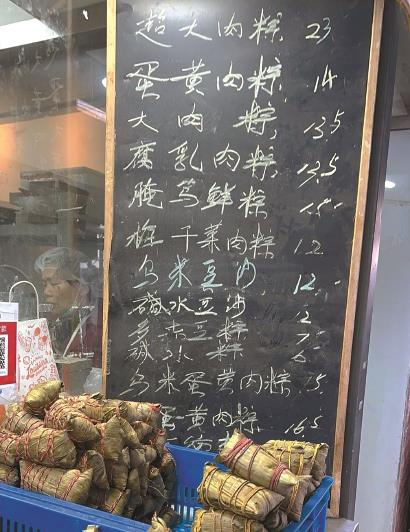 超大肉粽 23
蛋黄肉粽 14
大肉粽 13.5
腐乳肉粽 13.5
腌笃鲜粽 15
梅干菜肉粽 12
乌米豆沙 12
碱水豆沙
赤豆粽 7
碱水粽 6
乌米蛋黄肉粽
蛋黄肉粽 16.5